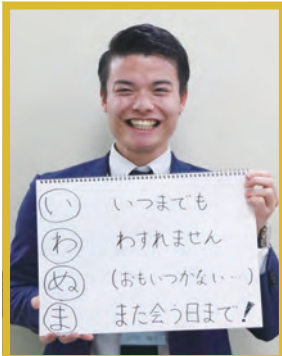 い いつまでも
わ わすれません
ぬ (おもいつかない…)
ま また会う日まで!